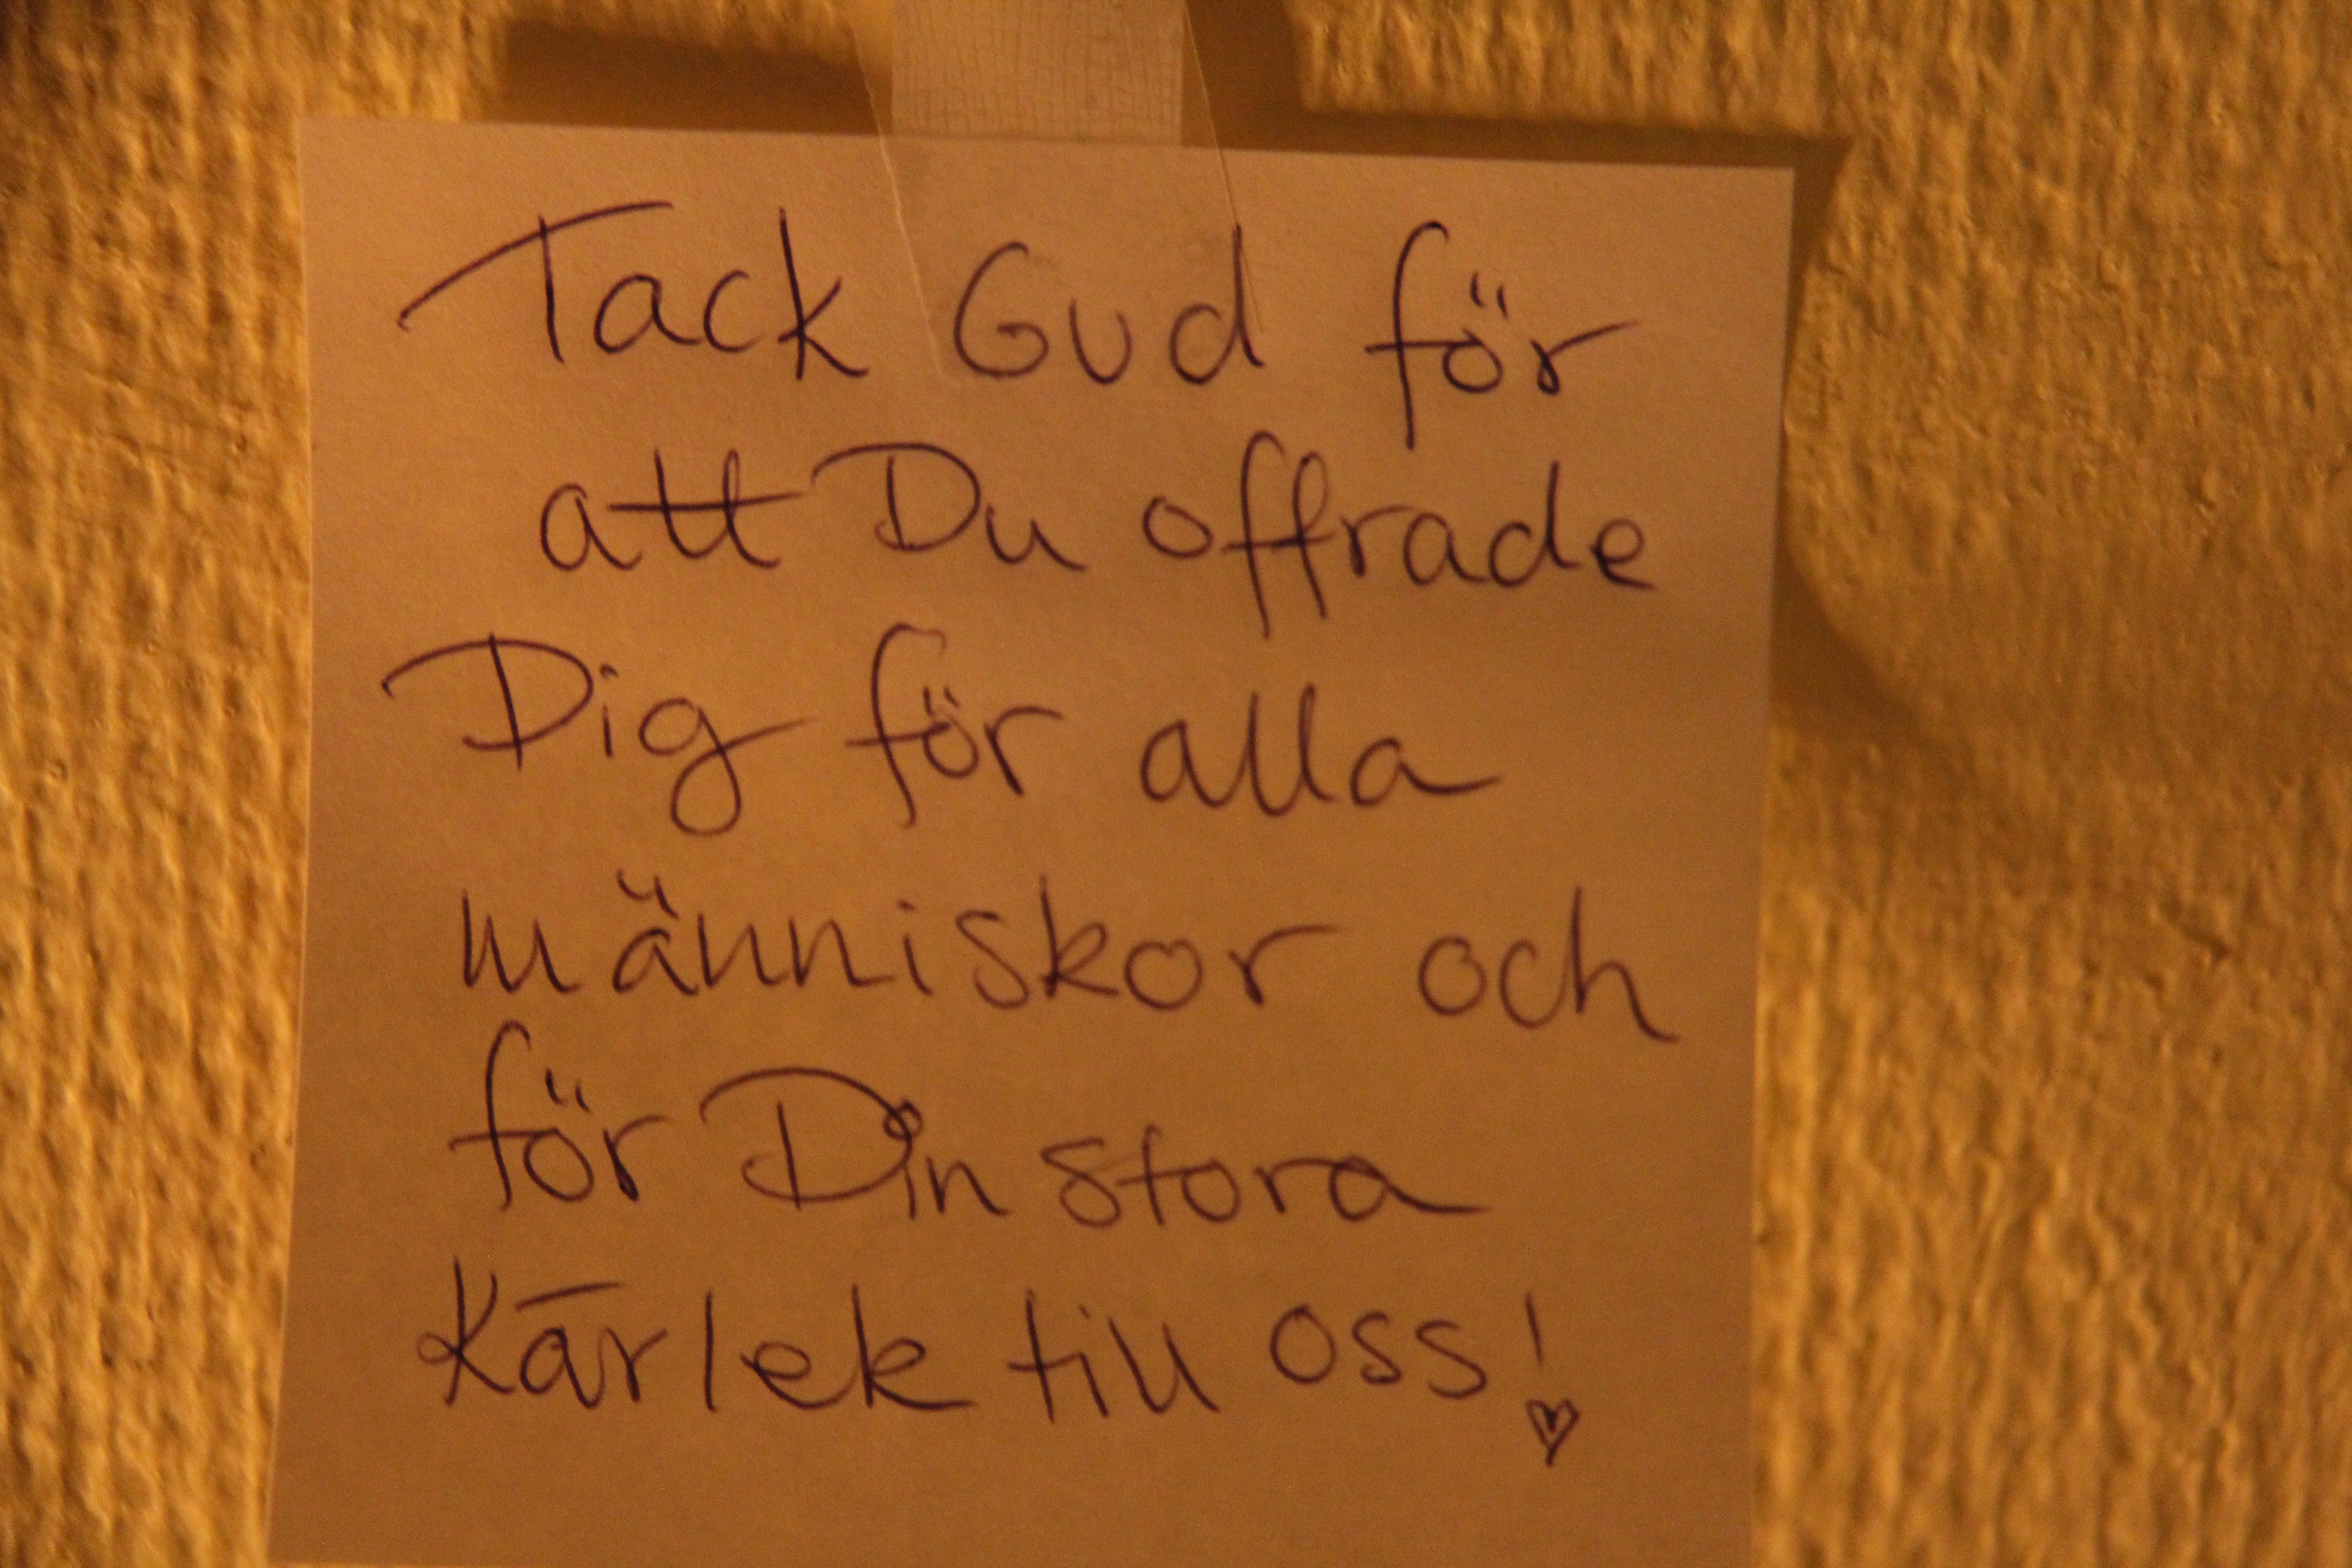 Tack Gud för
att Du offrade
Dig för alla
människor och
för Din stora
Kärlek till oss!